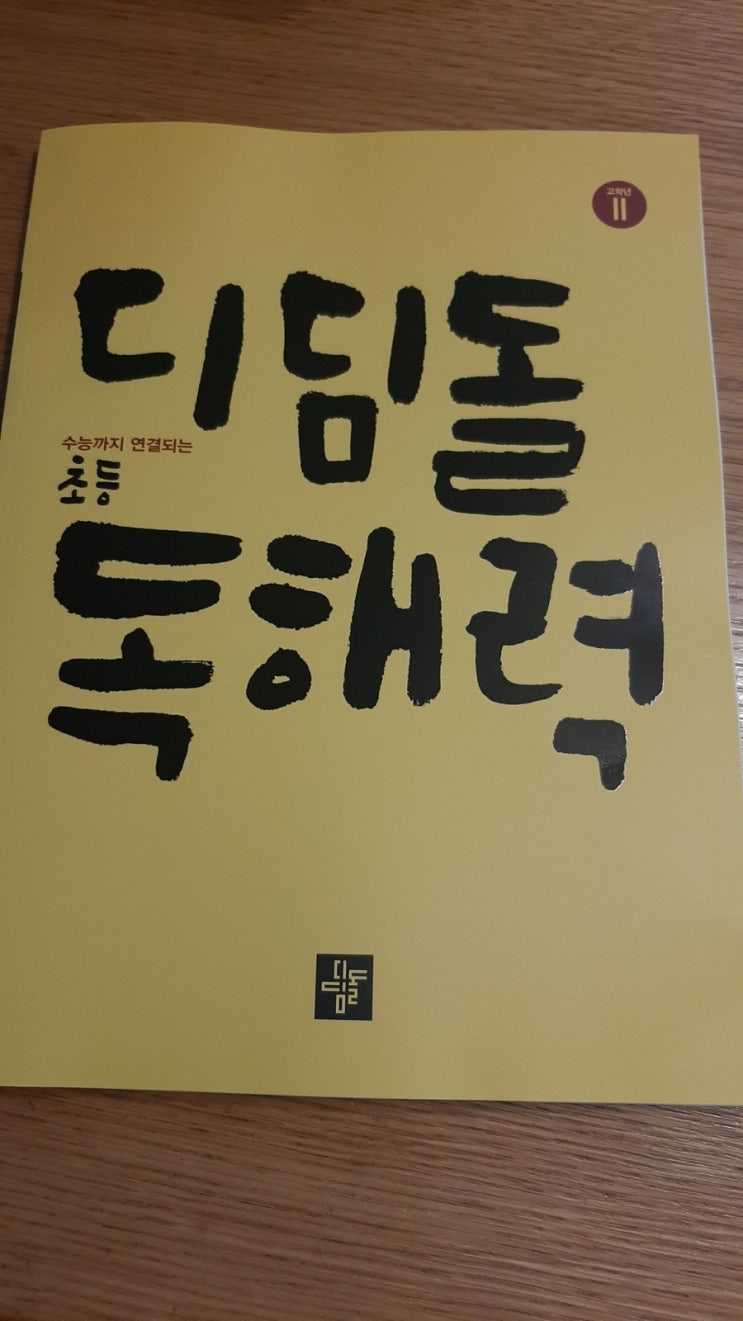 고학년
II
디딤돌
수능까지 연결되는
초등
독해력
디딤돌